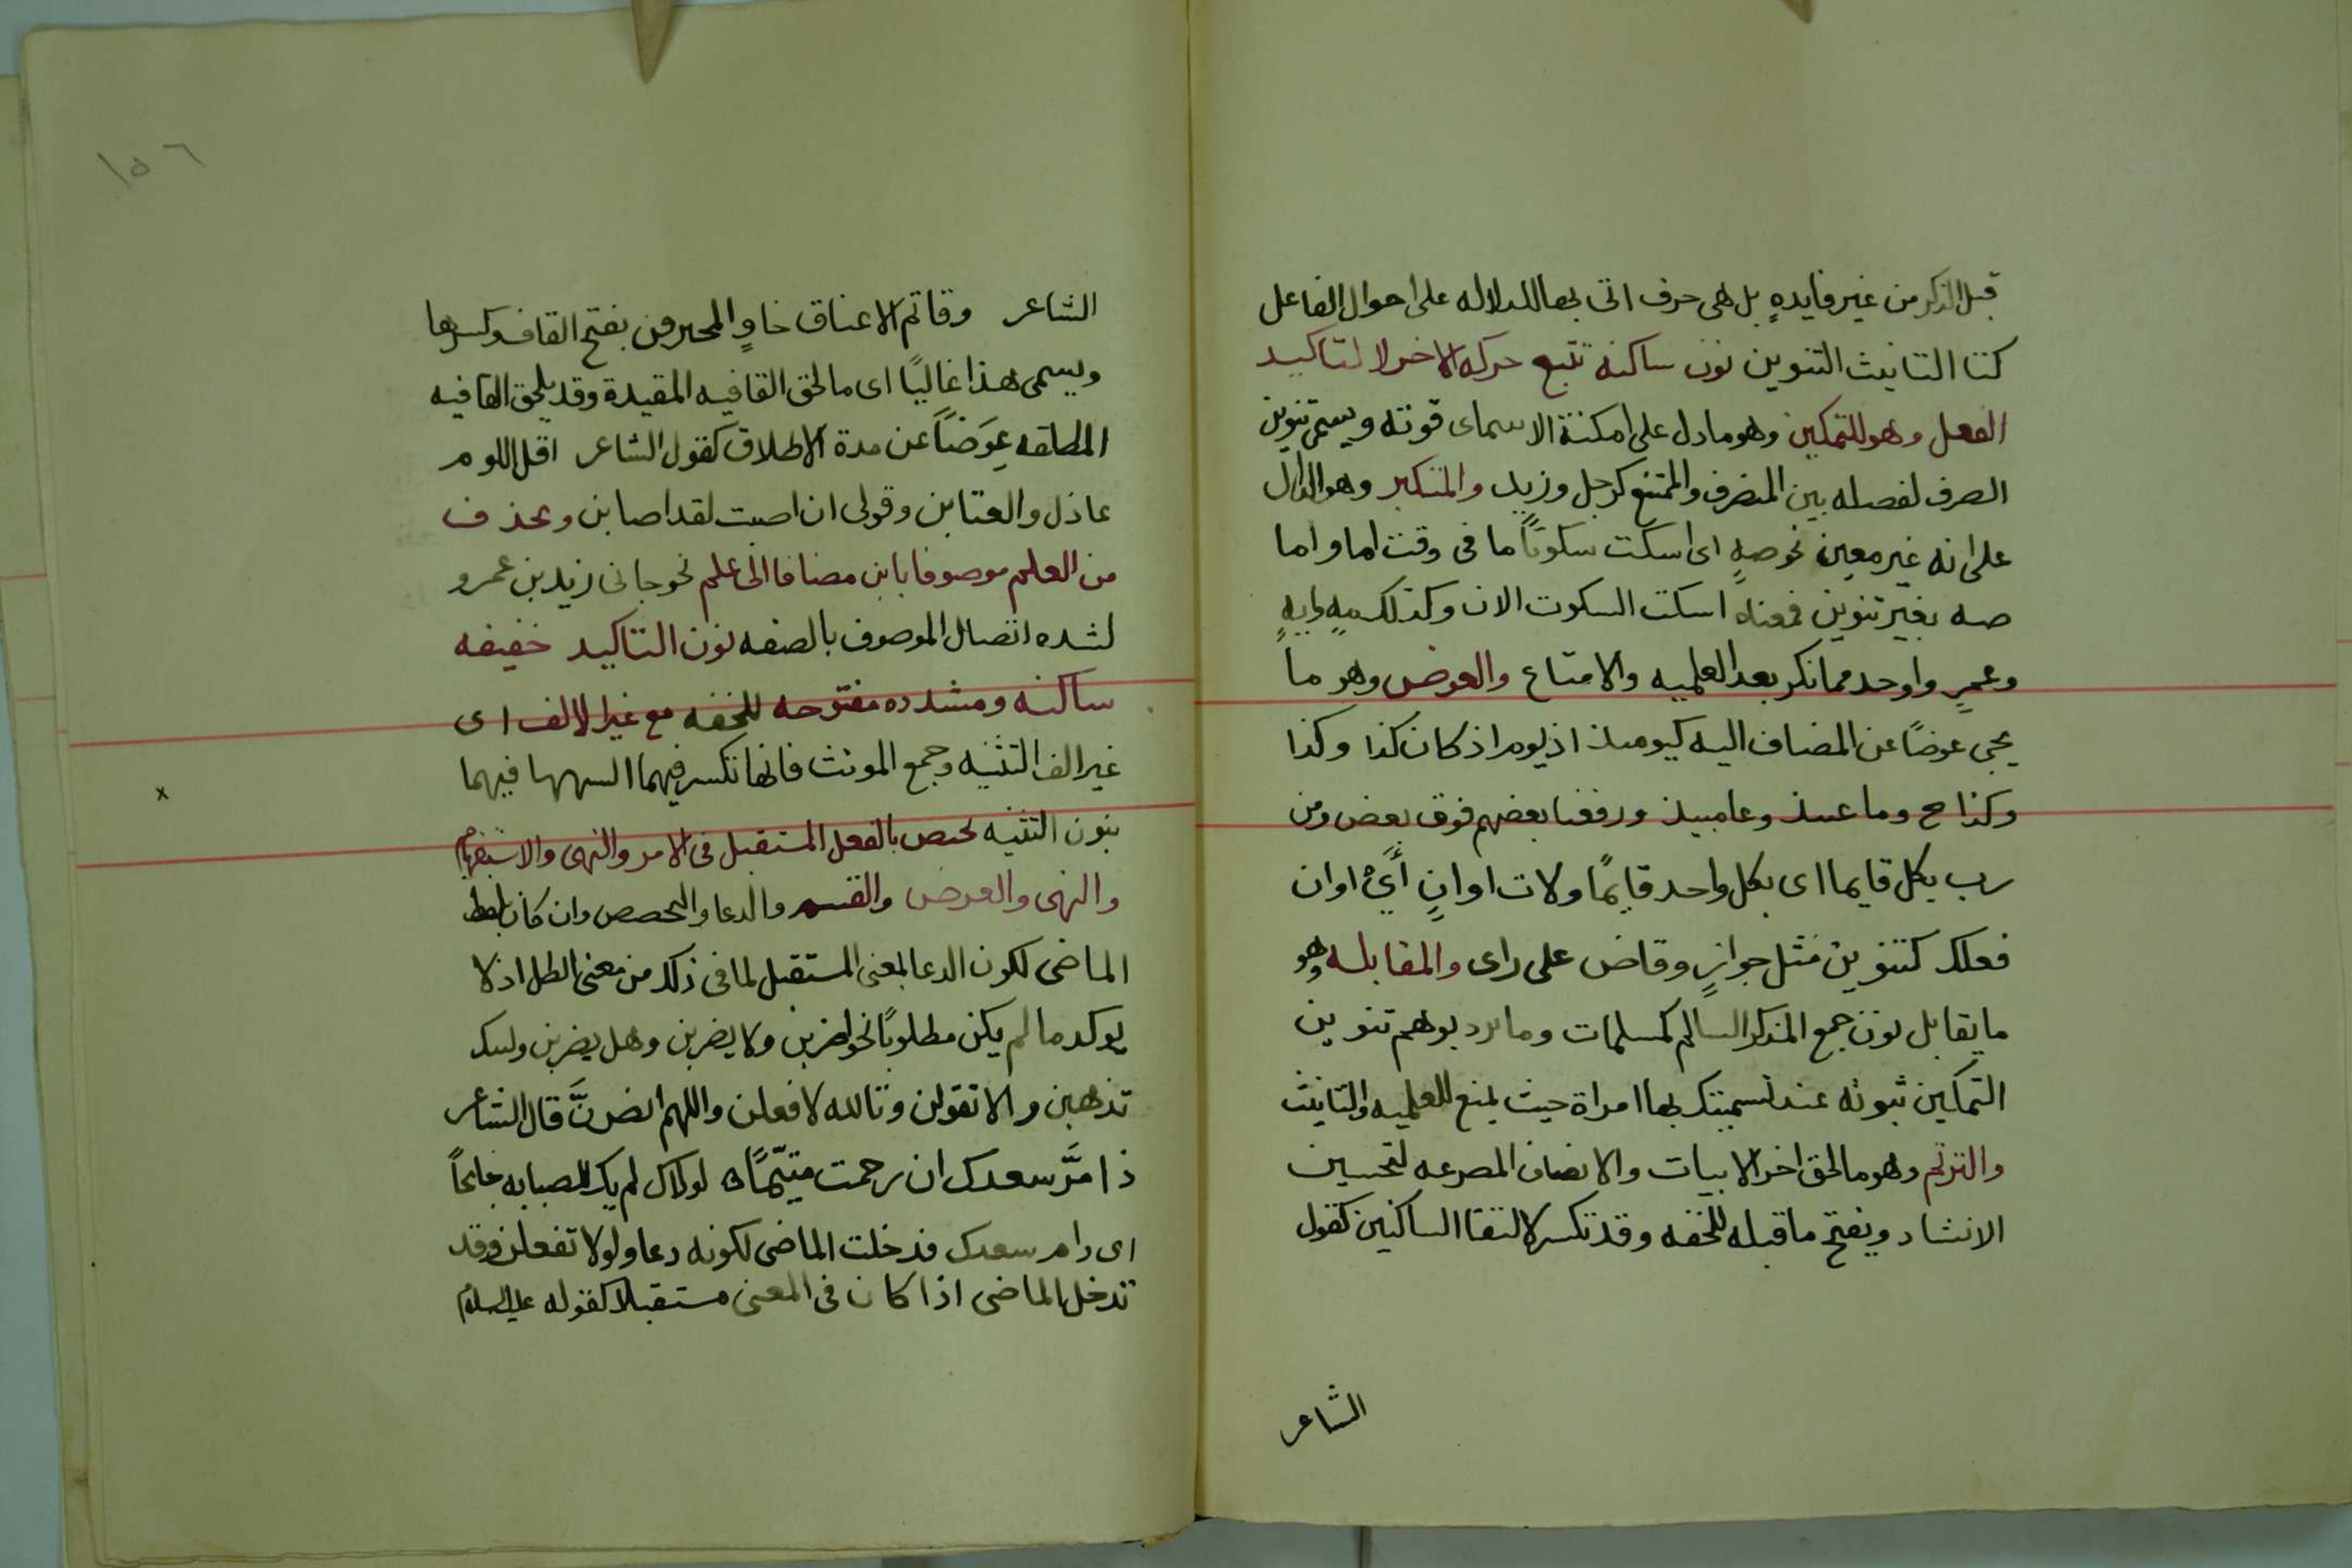 قبل الذكر من غير فايدهٍ بل هى حرف اتى بها للدلاله على احوال الفاعل
كتا التانيث التنوين نون ساكنه تتبع حركه الاخر لا لتاكيد
الفعل وهو للتمكين وهو مادل على امكنة الاسم اى قوته ويسمى تنوين
الصرف لفصله بين المنصرف والممتنع كرجل وزيد والتنكير وهو الدال
على انه غير معين نحو صهٍ اى اسكت سكوتاً ما فى وقت اما واما
صه بغير تنوين فمعناه اسكت السكوت الان وكذلك ميهٍ وايهٍ
وعمرٍ واوحد مما نكر بعد العلميه والامتناع والعوض وهو ما
يجى عوضاً عن المضاف اليه كيوميذ اذ يوم اذ كان كذا وكذا
وكذا ح وما عيذ وعاميذ ورفعنا بعضهم فوق بعض ومن
رب بكل قايما اى بكل واحد قايمًا ولات اوانٍ أىْ اوان
فعلك كتنوين مثل جوارٍ وقاض على راى والمقابله وهو
ما يقابل نون جمع المذكر السالم كمسلمات وما يرد بوهم تنوين
التمكين ثبوته عند تسميتك بها امراة حيث يمنع للعلميه والتانيث
والترنم وهو مالحق اخر الابيات والانصاف المصرعه لتحسين
الانشاد ويفتح ما قبله للخفه وقد تكسر لالتقا الساكنين كقول
الشاعر
١٥٦
الشاعر وقاتم الاعناق خاوٍ المخترقن بفتح القاف وكسرها
ويسمى هذا غاليًا اى مالحق القافيه المقيدة وقد يلحق القافيه
المطلقه عِوَضاً عن مدة الاطلاق كقول الشاعر اقل اللوم
عاذل والعتابن وقولى ان اصبت لقد اصابن ويحذف
من العلم موصوفا بابن مضافا الى علم نحو جانى زيد بن عمرو
لشده اتصال الموصوف بالصفه نون التاكيد خفيفه
ساكنه ومشدده مفتوحه للخفه مع غير الالف اى
غير الف التثنيه وجمع المونث فانها تكسر فيهما فيهما
بنون التثنيه تختص بالفعل المستقبل فى الامر والنهى والاستفهام
والنهى والعرض والقسم والدعا والتحضيض وان كان بلفظ
الماضى لكون الدعا لمعنى المستقبل لما فى ذلك من معنى الطلب اذ لا
يوكد ما لم يكن مطلوبًا نحو اضربن ولا يضربن وهل يضربن وليتك
تذهبن والا تقولن وتالله لافعلن واللهم انصرنَّ قال الشاعر
ذا مَرَّ سعدك ان رحمت متيّمًا لولاك لم يك للصبابه جانحاً
اى دام سعدك فدخلت الماضى لكونه دعا ولولا تفعلن وقد
تدخل الماضى اذا كان فى المعنى مستقبلا كقوله عليه السلام